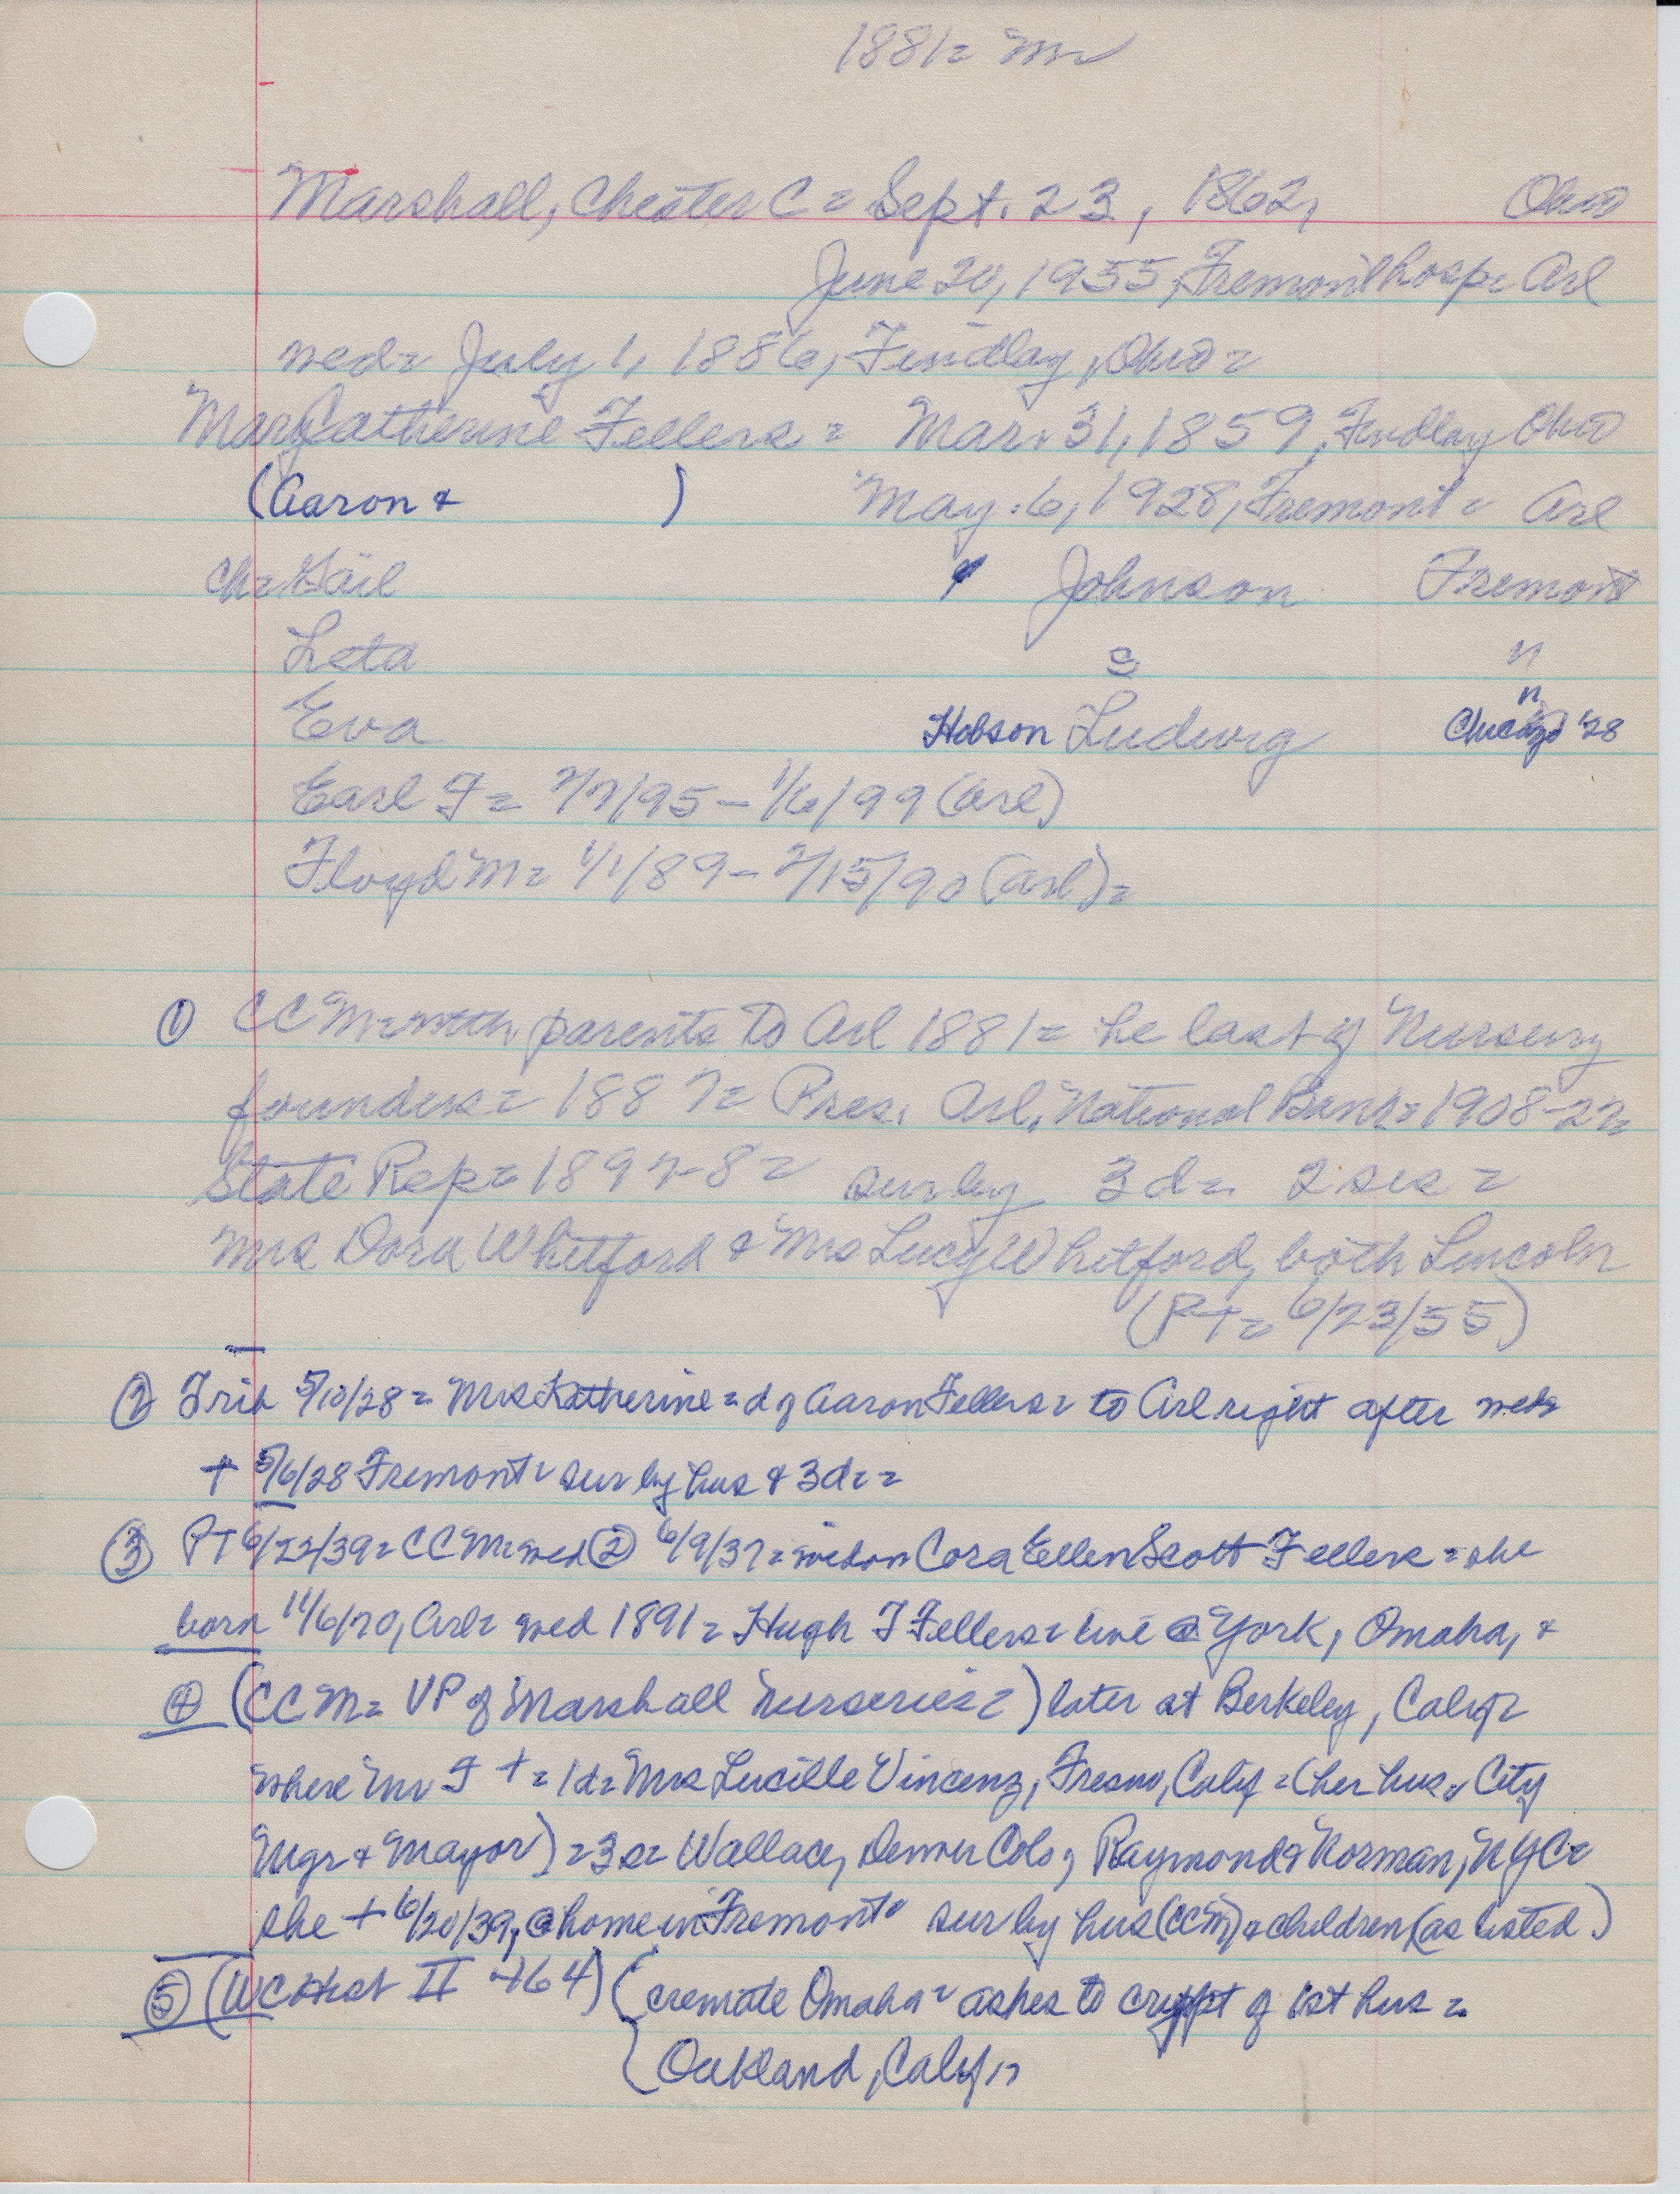 1881 =
Marshall, Chester C = Sept. 23, 1862, Ohio
June 20, 1955, Fremont hosp = Arl
wed = July 1, 1886, Findlay, Ohio =
Mary Catherine Fellers = Mar. 31, 1859, Findlay Ohio
(Aaron & ) May 6, 1928, Fremont = Arl
ch = Gail Johnson Fremont
Leta = "
Eva Hobson Ludwig " Chicago '28
Earl F = 7/7/95 - 1/6/99 (Arl)
Floyd M = 1/1/89 - 2/15/90 (Arl) =
① CCM = with parents to Arl 1881 = he last of Nursery
founders = 1887 = Pres. Arl. National Bank = 1908-27 =
State Rep = 1897-8 = sur by 3 d = 2 sis =
Mrs Dora Whitford & Mrs Lucy Whitford, both Lincoln
(PT = 6/23/55)
② Trib 5/10/28 = Mrs Katherine = d of Aaron Fellers = to Arl right after wed
+ 5/6/28 Fremont = sur by hus & 3 d = =
③ PT 6/22/39 = CCM = wed ② 6/9/37 = widow Cora Ellen Scott Fellers = she
born 11/6/70, Arl = wed 1891 = Hugh F Fellers = live @ York, Omaha, &
④ (CCM = VP of Marshall Nurseries =) later at Berkeley, Calif =
where Mr F + = 1 d = Mrs Lucille Vincenz, Fresno, Calif = (her hus. City
Mgr & Mayor) = 3 s = Wallace, Denver Colo, Raymond & Norman, NYC =
she + 6/20/39, @ home in Fremont = sur by hus (CCM) & children (as listed)
⑤ (WC Hist II 464) (cremate Omaha = ashes to crypt of 1st hus =
Oakland, Calif.)